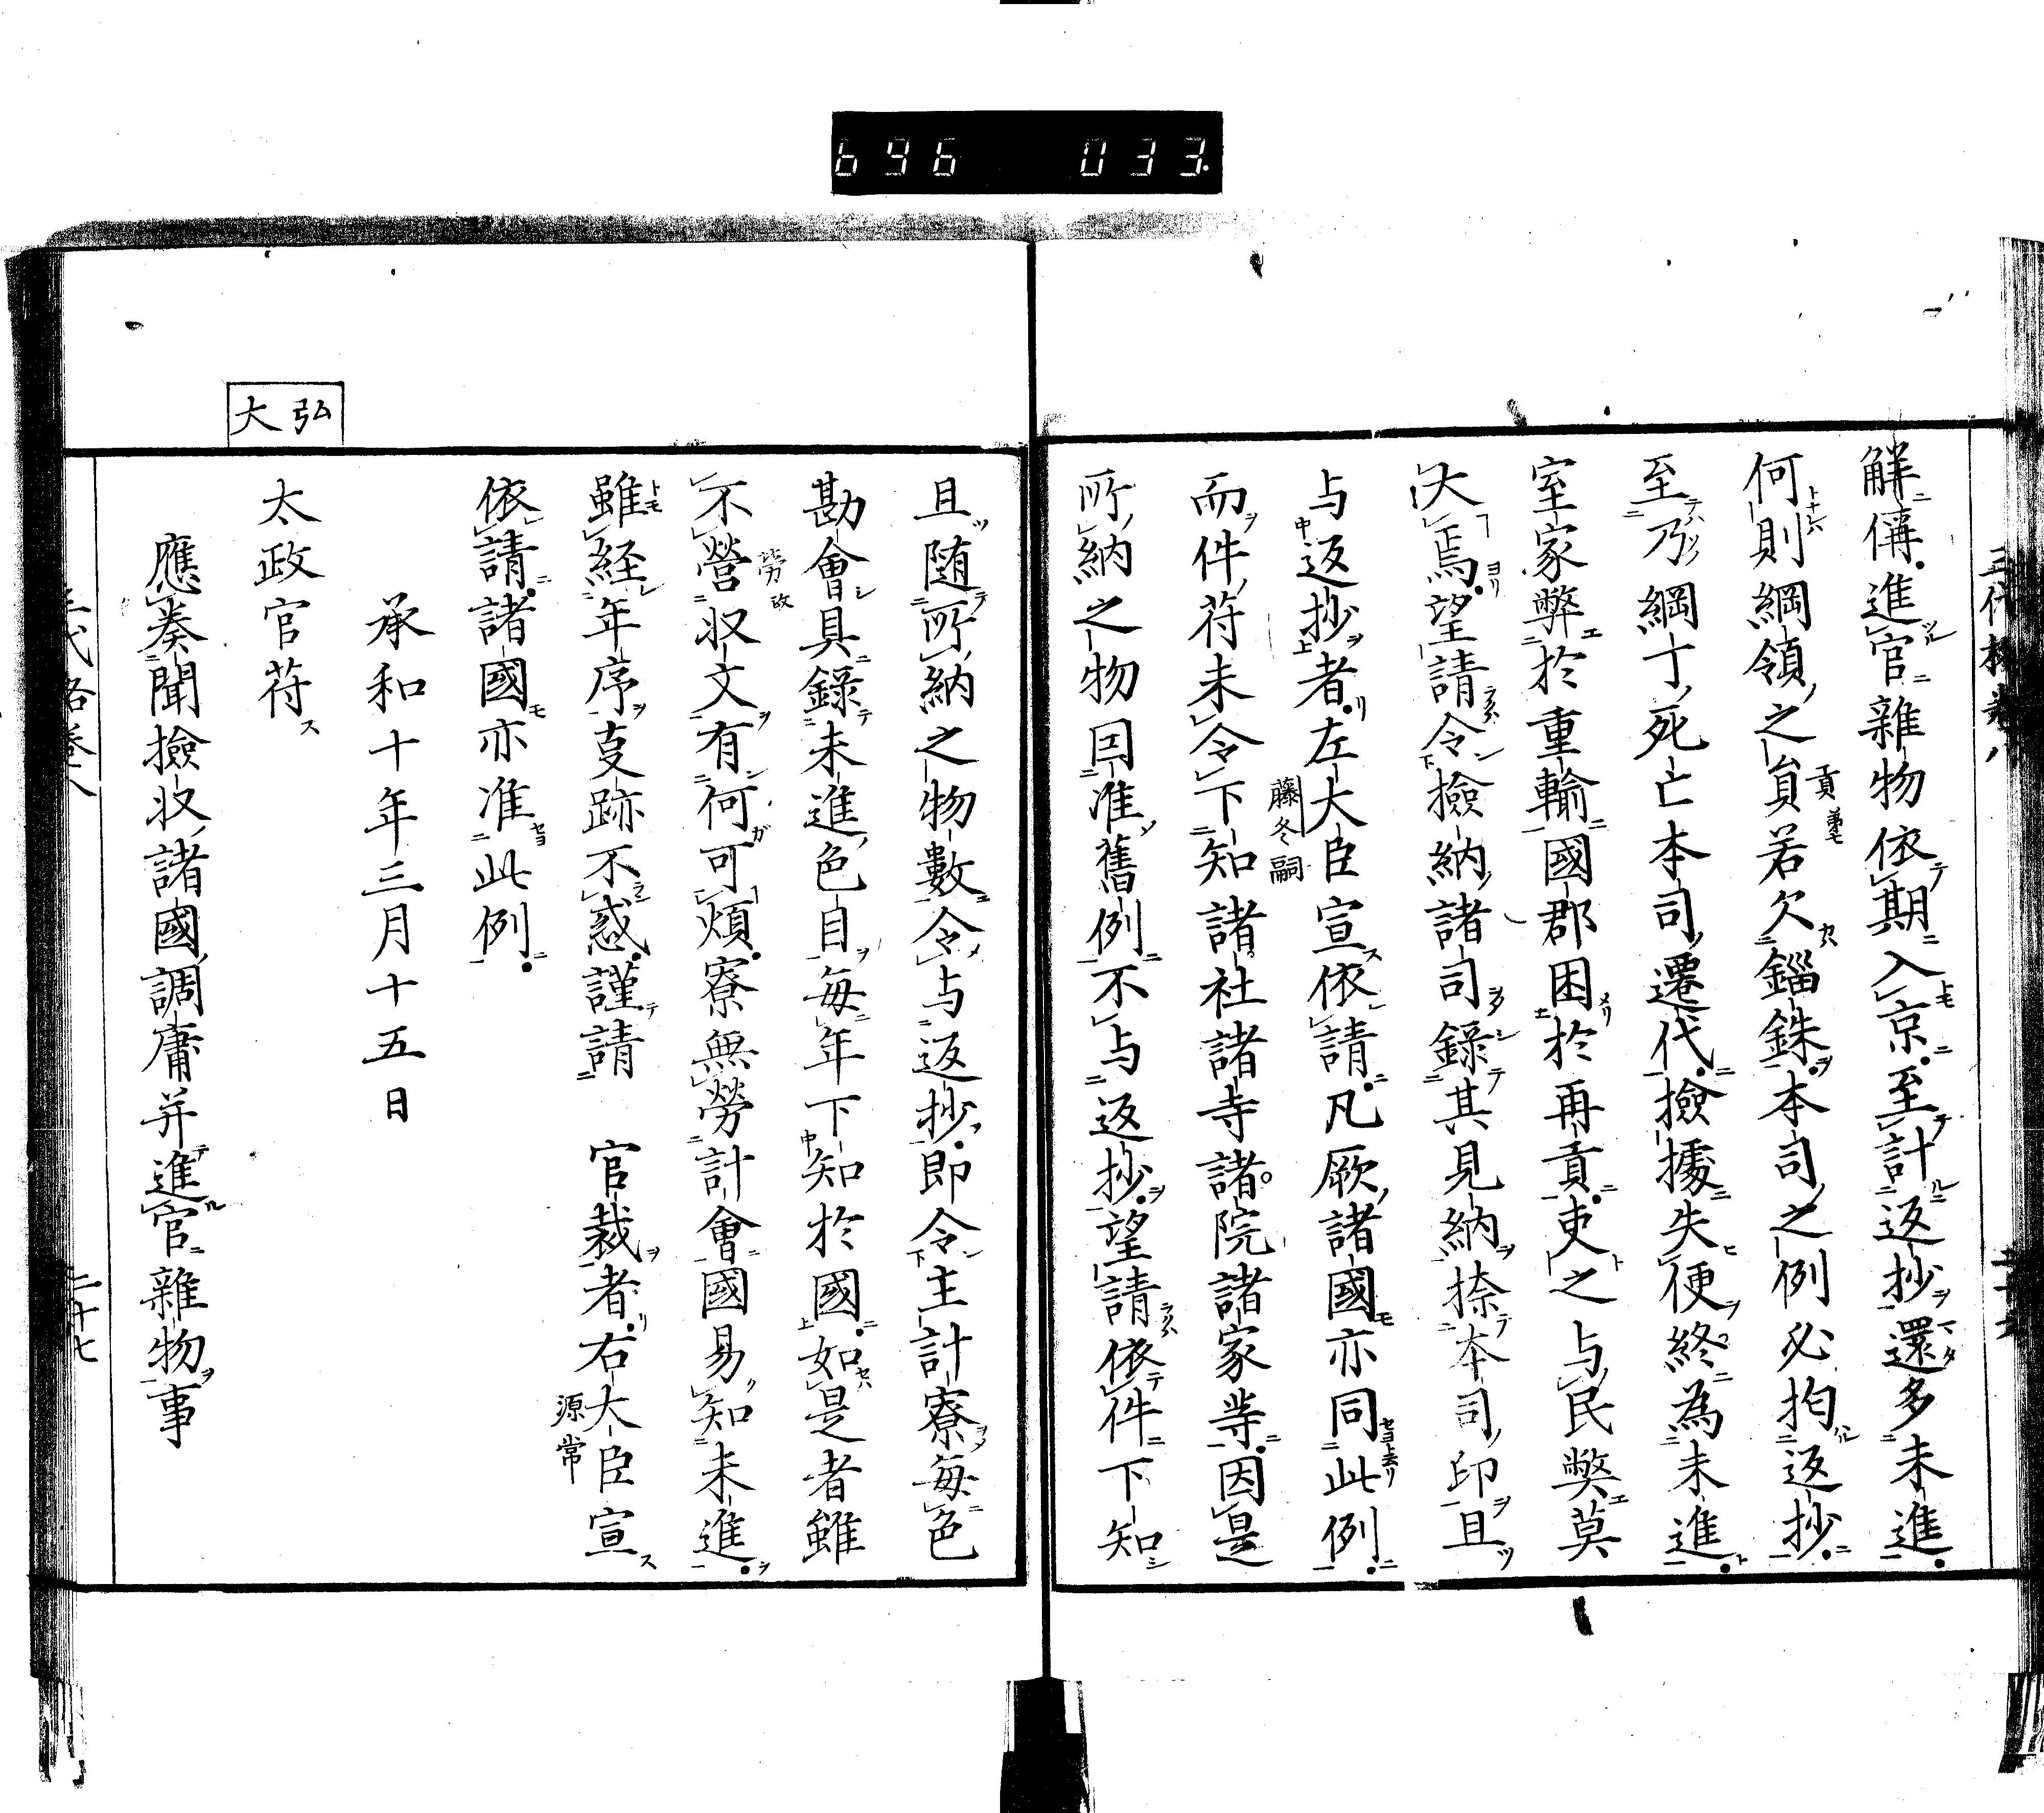 696 033
解偁進官雜物依期入京至計返抄還多未進
何則綱領之貟若欠錙銖本司之例必拘返抄
至乃綱丁死亡本司遷代撿據失便終為未進
室家弊於重輸國郡困於再貢吏之与民弊莫
大焉望請令撿納諸司錄其見納捺本司印且
与返抄者左大臣宣依請凡厥諸國亦同此例
藤冬嗣
而件符未令下知諸社諸寺諸院諸家䒭因是
所納之物因准舊例不与返抄望請依件下知
且随所納之物數令与返抄即令主計寮每色
勘會具錄未進色目每年下知於國如是者雖
不營収文有何可煩寮無勞計會國易知未進
勞 故
雖経年序㕝跡不惑謹請 官裁者右大臣宣
源常
依請諸國亦准此例
承和十年三月十五日
弘大
太政官符
應奏聞撿収諸國調庸并進官雜物事
二十七